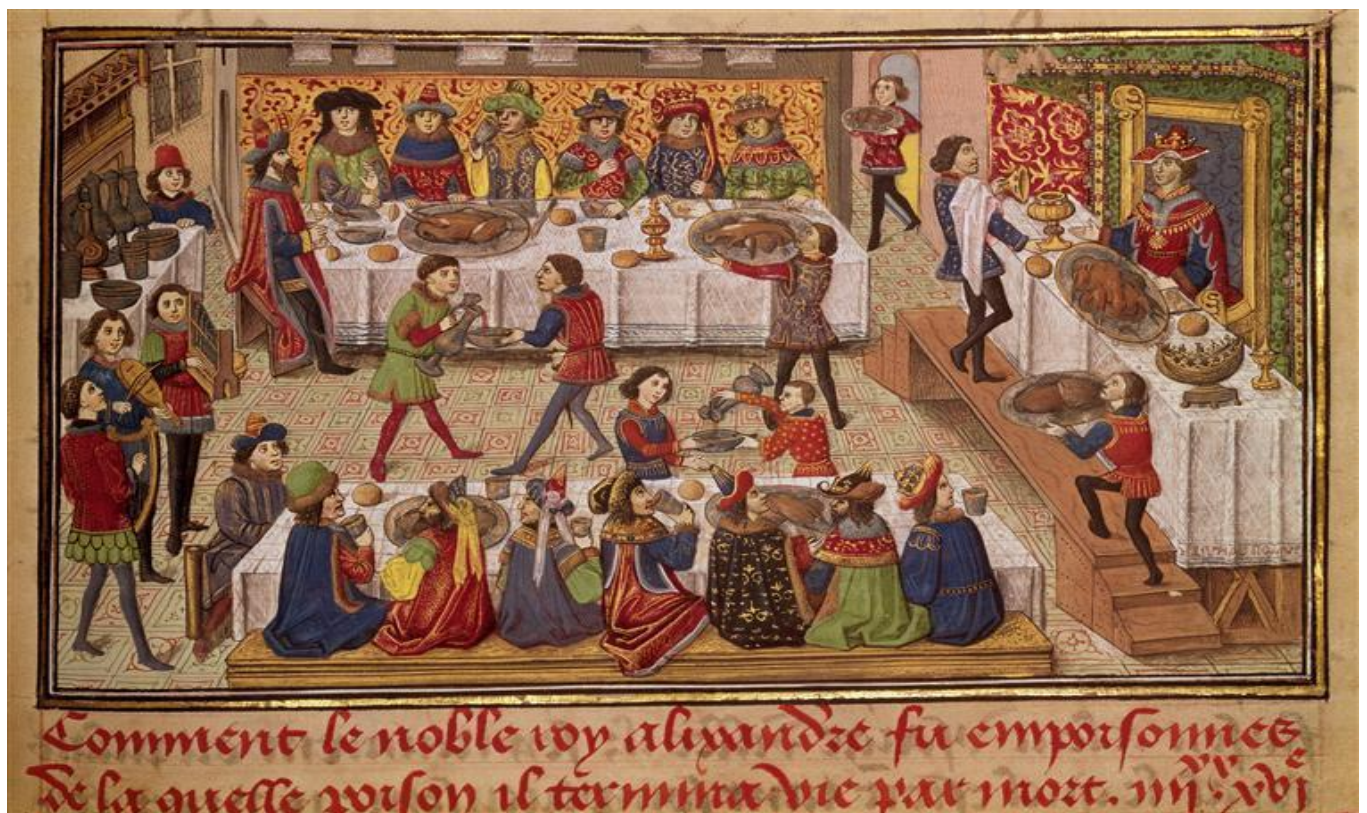 Comment le noble roy alixandre fu empoisonnes
de la quelle poison il termina vie par mort. iiij xx xvj e